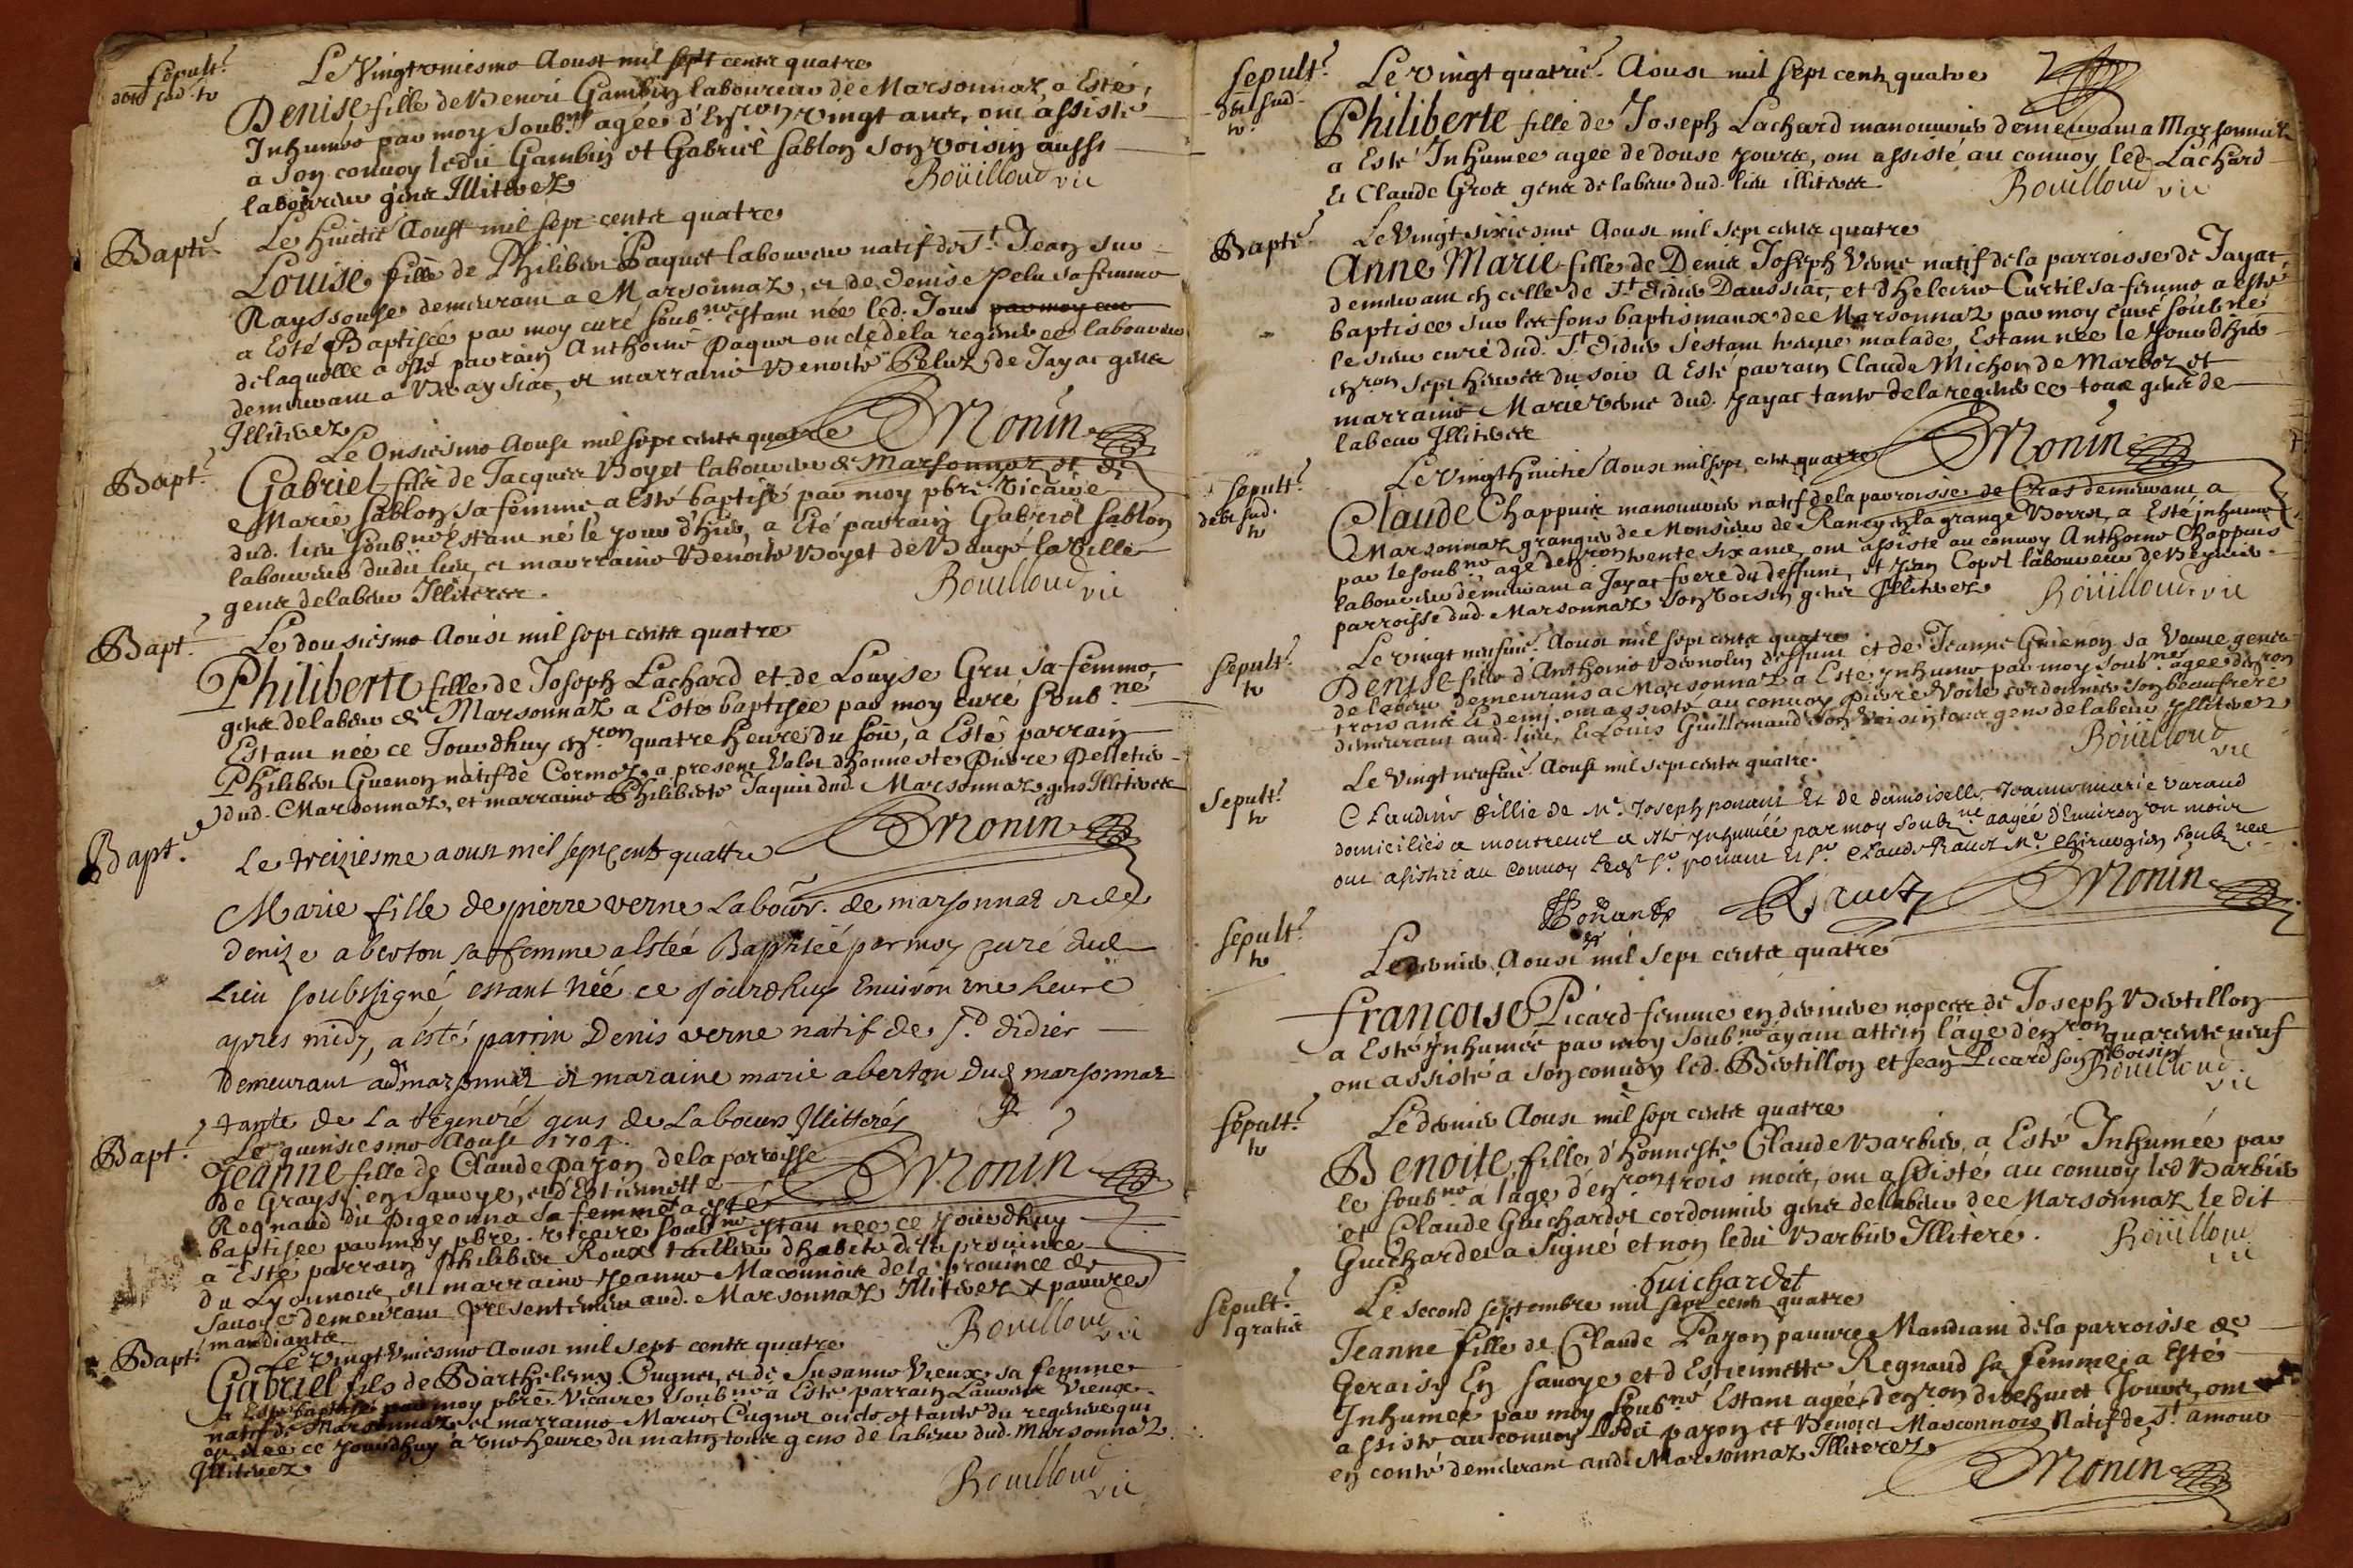 Sepult.e
Le Vingtroniesme Aoust mil sept cents quatre
Denise fille de Benoi Gambin laboureur de Marsonnaz, a Esté,
Inhumée par moy Soub.né agée d'En.ron vingt ans, ont assisté
a son convoy ledit Gambin et Gabriel Sablon son voisin aussi
laboureur gens Illiterez
Boüilloud vic
Bapt.e
Le huictie Aoust mil sept cents quatre
Louise fille de Philibert Paquet laboureur natif de St. Jean sur
Rayssouse demeurant a Marsonnaz, et de Denise Pelu sa femme
a Esté Baptisée par moy curé soub.né estant née led. Jour par moy cu
de laquelle a esté parrain Anthoine Paquet oncle de la regenerée laboureur
demeurant a , et marraine Benoite Peluz de Jayat gens
Illiterez
Monin
Bapt.e
Le Onsiesme Aoust mil sept cents quatre
Gabriel fils de Jacques Boyet laboureur de Marsonnaz et de
Marie Sablon sa femme a Esté baptisé par moy pbre vicaire
dud. lieu soub.né Estant né le jour d'hier, a Eté parrain Gabriel Sablon
laboureur dudit lieu, et marraine Benoite Boyet de Baugé la Ville
gens de labeur Illiterez.
Bouilloud vic
Bapt.e
Le dousiesme Aoust mil sept cents quatre
Philiberte fille de Joseph Lachard et de Louyse Gru sa femme
gens de labeur de Marsonnaz a Esté baptisée par moy curé soub.né
Estant née ce Jourdhuy en.ron quatre heure du soir, a Esté parrain
Philibert Guenon natif de Cormoz a present Valet d'honneste Pierre Pelletier
dud. Marsonnaz, et marraine Philiberte Jaquin dud. Marsonnaz gens Illiterez
Monin
Bapt.e
Le treiziesme aoust mil sept cents quattre
Marie fille de pierre verne Labour. de marsonnaz et de
denize aberton sa femme a Estée Baptisée par moy curé dud
Lieu soubsigné, estant Née ce jourdhuy Environ une heure
apres midy, a Esté parrin Denis verne natif de St. didier
Demeurant ad marsonnaz et maraine marie aberton dud marsonnaz
tante de la regeneré gens de Labeurs Illitterés
Monin
Bapt.e
Le quinsiesme Aoust 1704.
Jeanne fille de Claude Payon de la parroisse
de Graysi en Savoye, et d'Estiennette
Regnaud du Pigeonna sa femme a esté
baptisée par moy pbre. vicaire soub.né estant née ce jourdhuy
a Esté parrain Philibert Roux tailleur d'habits de la province
du Lyonnois, et marraine Jeanne Maconnois de la province de
Savoye demeurant presentement aud. Marsonnaz Illiterez et pauvres
mandiants
Bouilloud vic
Bapt.e
Le vingt Uniesme Aoust mil sept cents quatre
Gabriel fils de Barthelemy Cugnet, et de Susanne Vieux sa femme
a Esté baptisé par moy pbre. Vicaire soub.né a Esté parrain Laurent Vieuge
natif de Marsonnaz et marraine Marie Cugnet oncle et tante du regeneré qui
est née ce jourdhuy a une heure du matin tous gens de labeur dud. Marsonnaz.
Illiterez
Bouilloud vic
Sepult.e
Le vingt quatrie. Aoust mil sept cents quatre
Philiberte fille de Joseph Lachard manouvrier demeurant a Marsonnaz
a Esté Inhumee agée de douse jours, ont assisté au convoy led. Lachard
et Claude Gros gens de labeur dud. lieu illiterez
Bouilloud vic
Bapt.e
Le Vingt sixiesme Aoust mil sept cents quatre
Anne Marie fille de Denis Joseph Verne natif de la parroisse de Jayat,
demeurant en celle de St. Didier Daussiat, et d'helene Curtil sa femme a esté
baptisée sur les fons baptismaux de Marsonnaz par moy curé soub.né
le sieur curé dud. St. Didier s'estant trouvé malade, Estant née le jour d'hier
en.ron sept heures du soir a Esté parrain Claude Michon de Marboz et
marraine Marie verne dud. Jayat tante de la regenerée tous gens de
labeur Illiterez
Monin
Sepult.e
Le Vingt huictie Aoust mil sept cents quatre
Claude Chappuis manouvrier natif de la parroisse de Cras demeurant a
Marsonnaz granger de Monsieur de Rancy en la grange , a Esté inhumé
par le soub.né agé d'en.ron trente six ans, ont assisté au convoy Anthoine Chappuis
laboureur demeurant a Jayat frere du deffunt, et Jean Copet laboureur de
parroisse dud. Marsonnaz son voisin gens Illiterez
Boüilloud vic
Sepult.e
Le vingt neufvie. Aoust mil sept cents quatre
Denise fille d'Anthoine deffunt et de Jeanne Guenon sa Veuve gens
de labeur demeurans a Marsonnaz a Esté inhumée par moy soub.né agée d'en.ron
trois ans et demi, ont assisté au convoy Pierre cordonnier son beaufrere
demeurant aud. lieu, et Louis Guillemaud son voisin tous gens de labeur illiterez
Boüilloud
vic
Sepult.e
Le Vingt neufvie. Aoust mil sept cents quatre.
Claudine fillie de Mr. Joseph ponant et de damoiselle Jeanne marie varaud
domiciliés a montreuil a esté Inhumée par moy soub.né aagée d'Environ un mois
ont asisté au convoy led Sr. ponant et Sr. Claude Me. chirurgien soub.nez
Monin
Sepult.e
Le dernier Aoust mil sept cents quatre
Francoise Picard femme en dernieres nopces de Joseph Bertillon
a Esté Inhumée par moy soub.né ayant attein l'age d'en.ron quarente neuf
ont assisté a son convoy led. Bertillon et Jean Picard son Voisin
Bouilloud
vic
Sepult.e
Le dernier Aoust mil sept cents quatre
Benoite fille d'honneste Claude Barbier, a Esté Inhumée par
le soub.né a l'age d'en.ron trois mois, ont assisté au convoy led Barbier
et Claude Guichardet cordonnier gens de labeur de Marsonnaz le dit
Guichardet a signé et non ledit Barbier Illiteré.
Boüilloud
vic
Guichardet
Sepult.e
gratis
Le second septembre mil sept cents quatre
Jeanne fille de Claude Payon pauvre Mandiant de la parroisse de
Geraisy En Savoye et d'Estiennette Regnaud sa femme, a Esté
Inhumee par moy soub.né Estant agée d'en.ron dixehuict Jours, ont
assisté au convoy ledit payon et Benoit Masconnois Natif de St. amour
en conté demeurant aud. Marsonnaz Illiterez
Monin